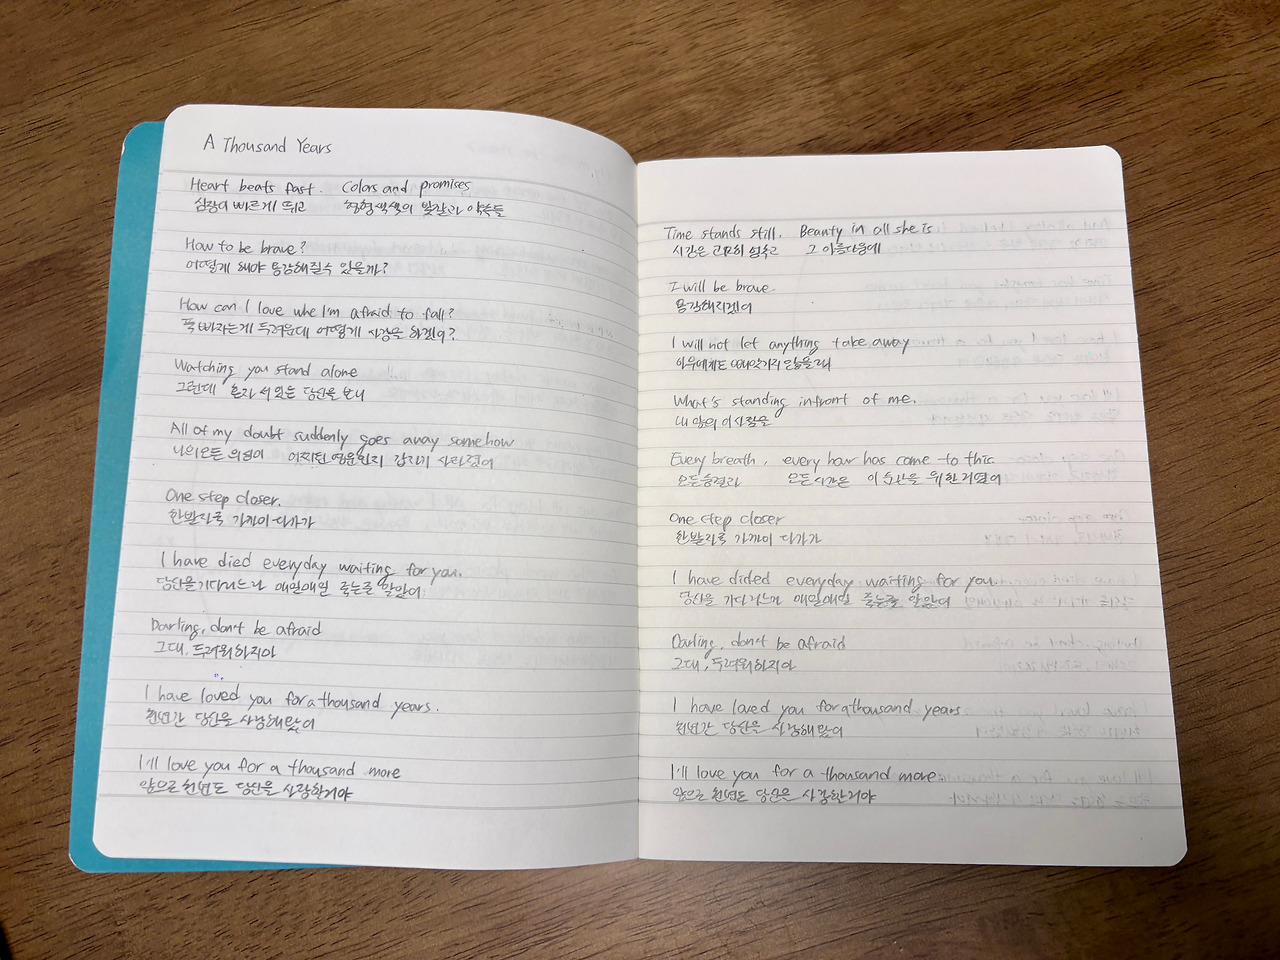 A Thousand Years
Heart beats fast. Colors and promises
심장이 빠르게 뛰고 형형색색의 빛깔과 약속들
How to be brave?
어떻게 해야 용감해질수 있을까?
How can I love whe I'm afraid to fall?
푹 빠지는게 두려운데 어떻게 사랑을 하겠어?
Watching you stand alone
그런데 혼자 서있는 당신을 보니
All of my doubt suddenly goes away somehow
나의모든 의심이 어찌된 영문인지 갑자기 사라졌어
One step closer.
한발지국 가까이 다가가
I have died everyday waiting for you.
당신을기다리느라 매일매일 죽는줄 알았어
Darling, don't be afraid
그대, 두려워하지아
I have loved you for a thousand years.
천년간 당신을 사랑해왔어
I'll love you for a thousand more
앞으로 천년도 당신을 사랑할거야
Time stands still. Beauty in all she is
시간은 고요히 멈추고 그 아름다움에
I will be brave
용감해지겠어
I will not let anything take away
아무에게도
What's standing infront of me.
내 앞의 이사람을
Every breath, every hour has come to this
모든숨결과 모든시간은 이 순간을 위한거였어
One step closer
한발지국 가까이 다가가
I have dided everyday waiting for you.
당신을 기다리느라 매일매일 죽는줄 알았어
Darling, don't be afraid
그대, 두려워하지아
I have loved you for a thousand years
천년간 당신을 사랑해왔어
I'll love you for a thousand more
앞으로 천년도 당신을 사랑할거야